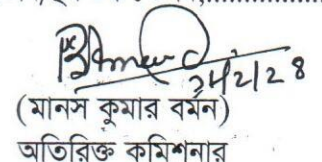 ২৮/২/২৪
(মানস কুমার বর্মন)
অতিরিক্ত কমিশনার